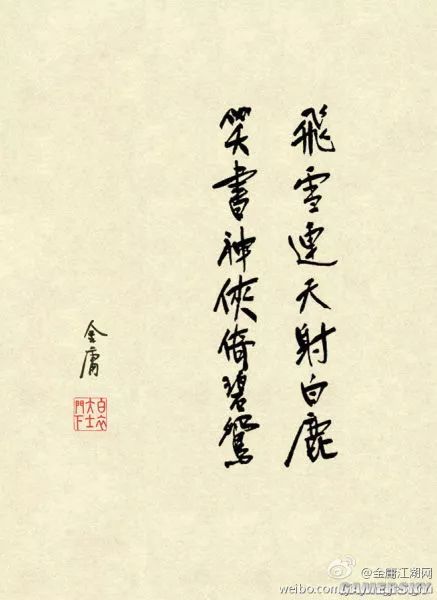 飛雪連天射白鹿
笑書神俠倚碧鴛
金庸
白衣大士門下
@金庸江湖网
weibo.com/
GAMERSKY